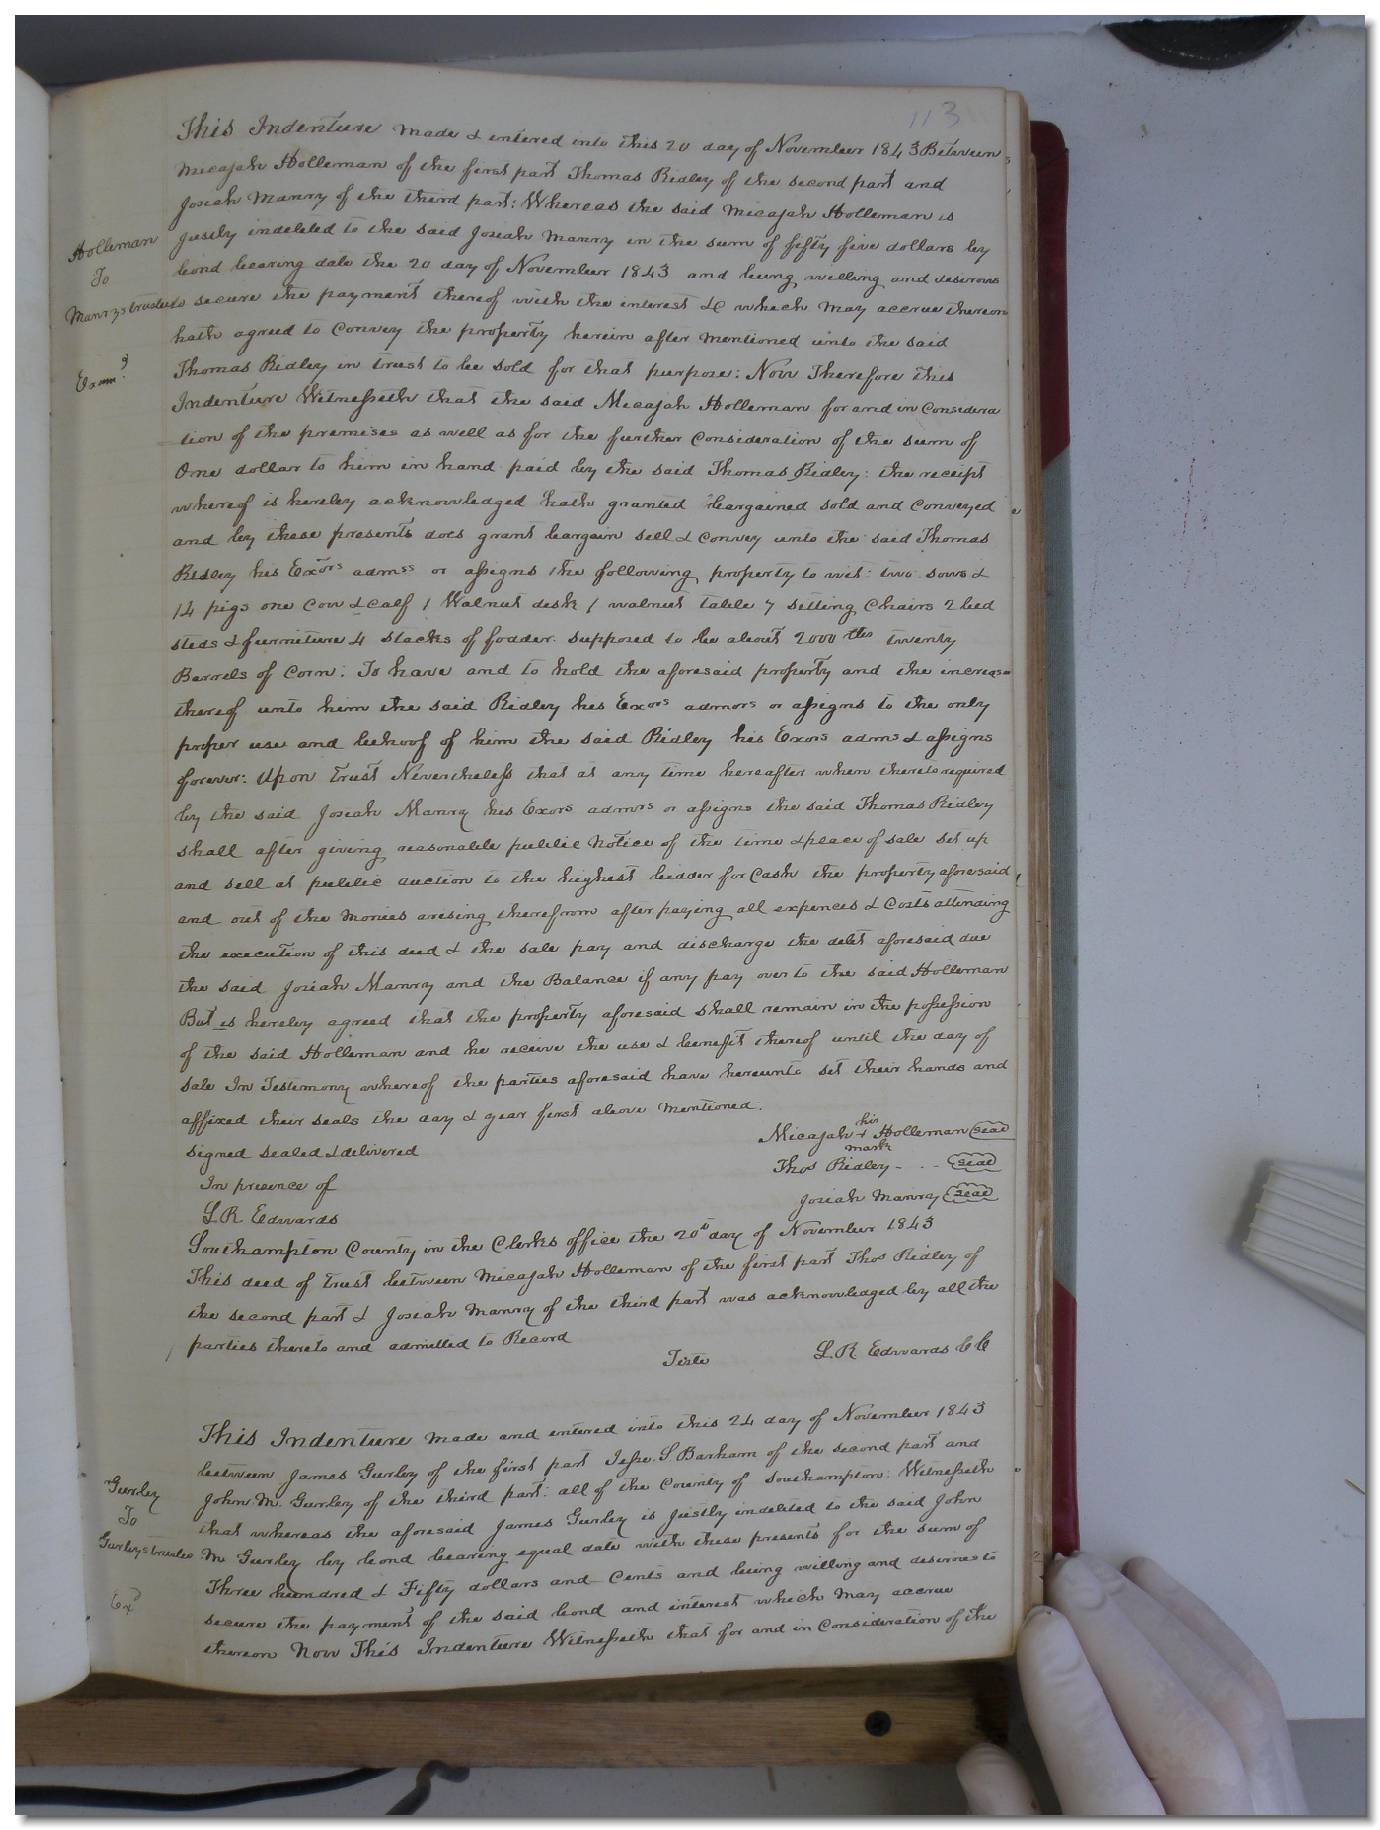 113
This Indenture made & entered into this 20 day of November 1843 Between
Micajah Holleman of the first part Thomas Ridley of the second part and
Josiah Manry of the third part: Whereas the said Micajah Holleman is
Holleman
To
Manrys trustee
Exam.d
justly indebted to the said Josiah Manry in the sum of fifty five dollars by
bond bearing date the 20 day of November 1843 and being willing and desirous
to secure the payment thereof with the interest &c which may accrue thereon
hath agreed to convey the property herein after mentioned unto the said
Thomas Ridley in trust to be sold for that purpose: Now Therefore this
Indenture Witnesseth that the said Micajah Holleman for and in Considera
tion of the premises as well as for the further Consideration of the sum of
One dollar to him in hand paid by the said Thomas Ridley: the receipt
whereof is hereby acknowledged hath granted bargained sold and conveyed
and by these presents does grant bargain sell & convey unto the said Thomas
Ridley his Exors admss or assigns the following property to wit: two sows &
14 pigs one Cow & calf 1 Walnut desk 1 walnut table 7 sitting Chairs 2 bed
steds & furniture 4 stacks of fodder supposed to be about 2000 lbs twenty
Barrels of Corn: To have and to hold the aforesaid property and the increase
thereof unto him the said Ridley his Exors admors or assigns to the only
proper use and behoof of him the said Ridley his Exors adms & assigns
forever: Upon Trust Nevertheless that at any time hereafter when thereto required
by the said Josiah Manry his Exors admrs or assigns the said Thomas Ridley
shall after giving reasonable public Notice of the time & place of sale set up
and sell at public auction to the highest bidder for Cash the property aforesaid
and out of the monies arising therefrom after paying all expences & Costs attending
the execution of this deed & the sale pay and discharge the debt aforesaid due
the said Josiah Manry and the Balance if any pay over to the said Holleman
But is hereby agreed that the property aforesaid shall remain in the possession
of the said Holleman and he receive the use & benefit thereof until the day of
sale In Testimony whereof the parties aforesaid have hereunto set their hands and
affixed their seals the day & year first above mentioned.
signed sealed & delivered
In presence of
L. R. Edwards
his
Micajah + Holleman seal
mark
Thos Ridley - . - seal
Josiah Manry seal
Southampton County in the Clerks office the 20th day of November 1843
This deed of trust between Micajah Holleman of the first part Thos Ridley of
the second part & Josiah Manry of the third part was acknowledged by all the
parties thereto and admitted to Record
Teste L. R. Edwards CC
This Indenture made and entered into this 24 day of November 1843
between James Gurley of the first part Jesse S Barham of the second part and
Gurley
To
Gurleys trustee
Exd
John M. Gurley of the third part: all of the County of Southampton: Witnesseth
that whereas the aforesaid James Gurley is justly indebted to the said John
M Gurley by bond bearing equal date with these presents for the sum of
Three hundred & Fifty dollars and Cents and being willing and desirous to
secure the payment of the said bond and interest which may accrue
thereon Now This Indenture Witnesseth that for and in Consideration of the